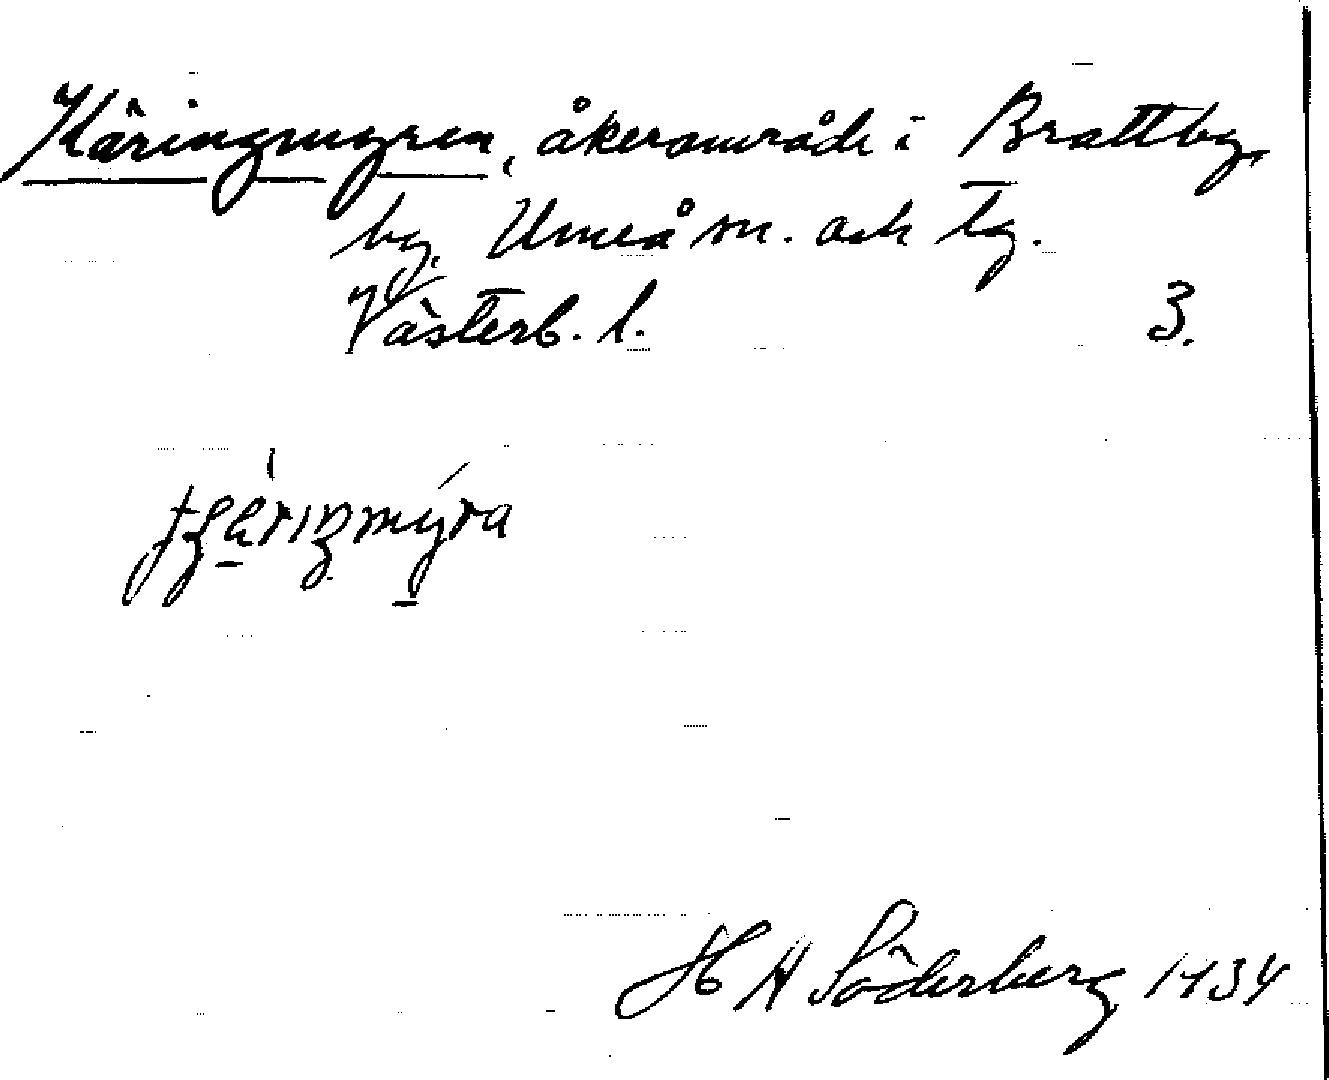 Käringmyren, åkerområde i Brattby,
by. Umeå sn. och tg.
Västerb. l. 3.
H A Söderberg 1934